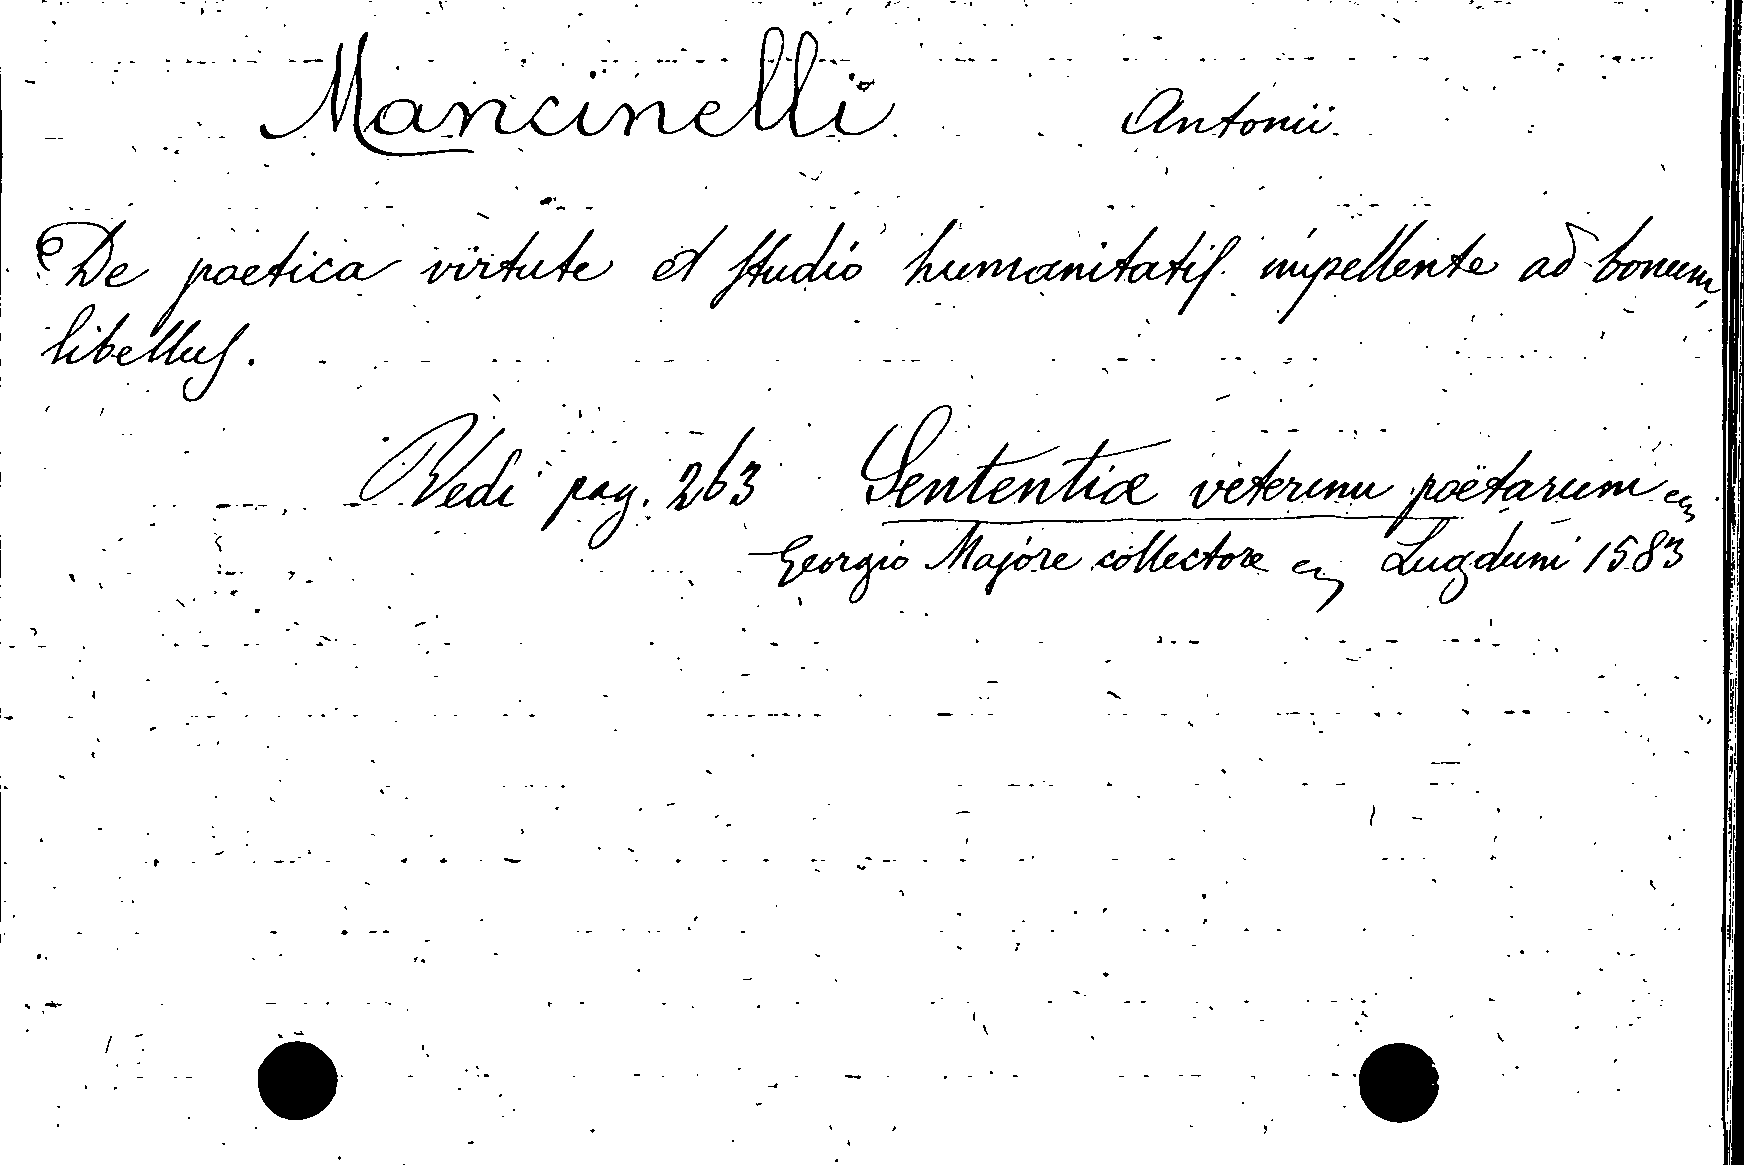 Mancinelli Antonii
De poetica virtute et studio humanitatis impellente ad bonum
libellus.
Vedi pag. 263 Sententiæ veterum poëtarum
Georgio Majore collectore Lugduni 1583